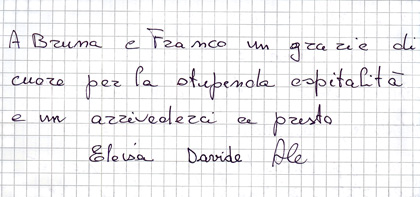 A Bruna e Franco un grazie di
cuore per la stupenda ospitalità
e un arrivederci a presto
Eloisa Davide Ale